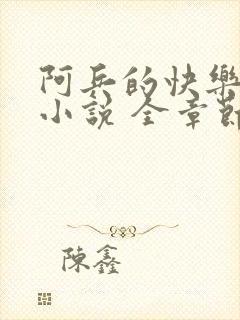 阿兵的快樂
小說 全章節
陳鑫